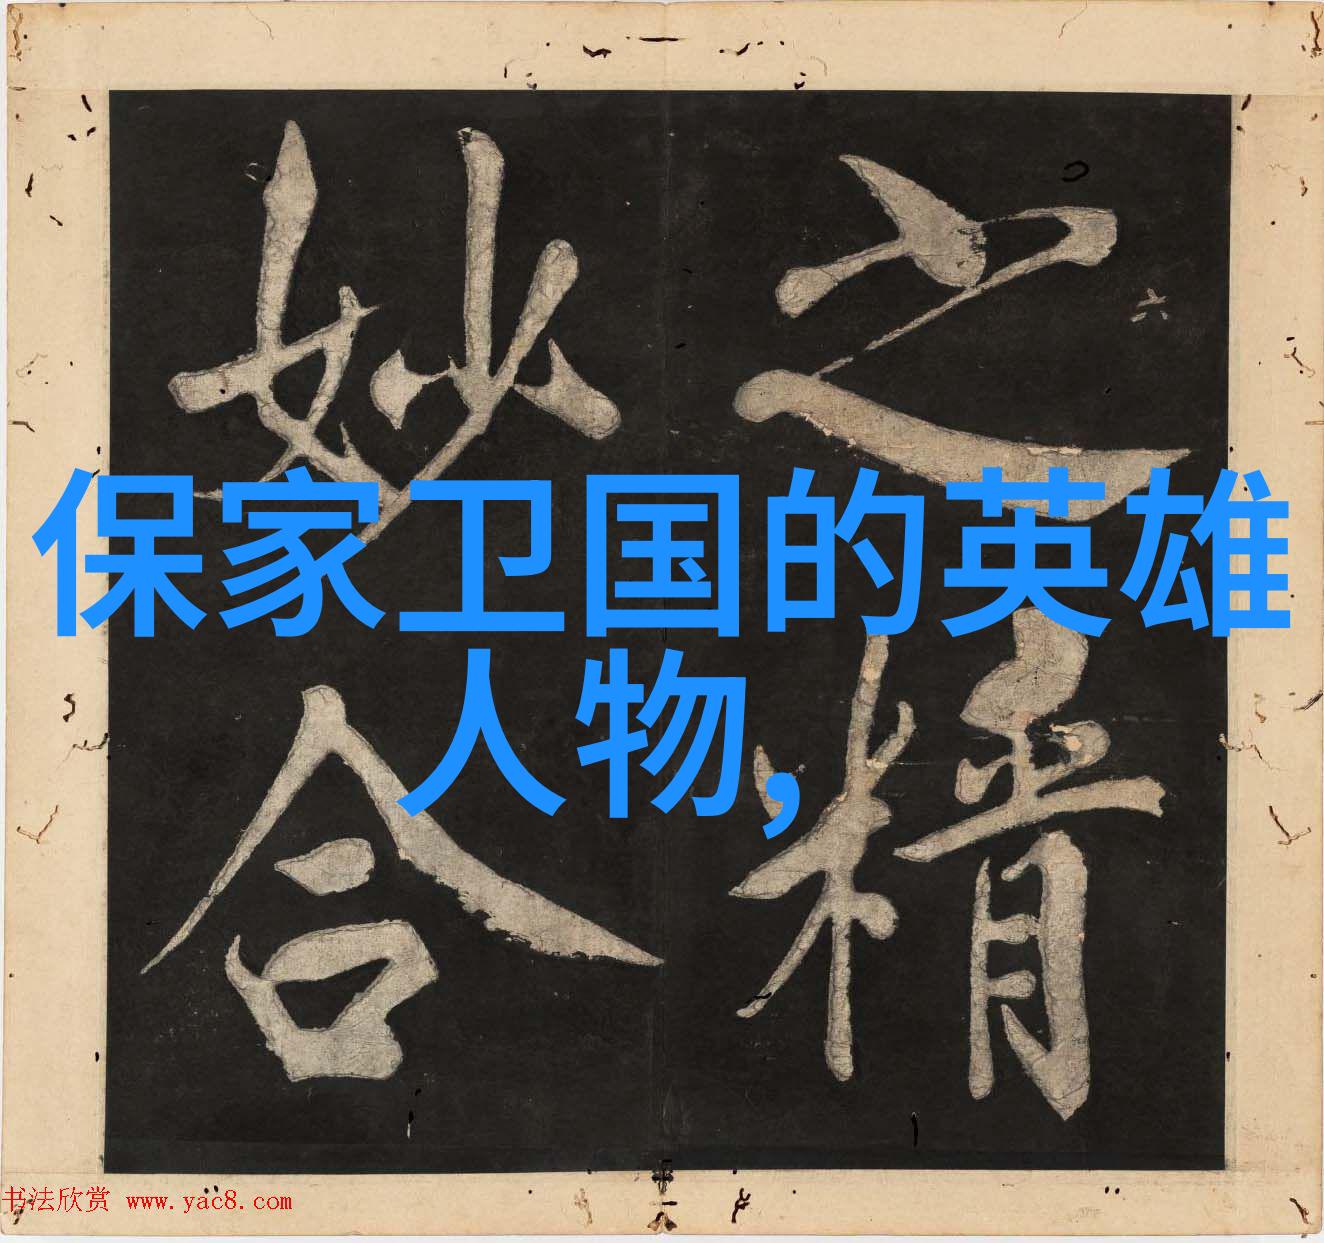 之精
妙合
六
保家卫国的英雄
人物,
书法欣赏 www.yac8.com